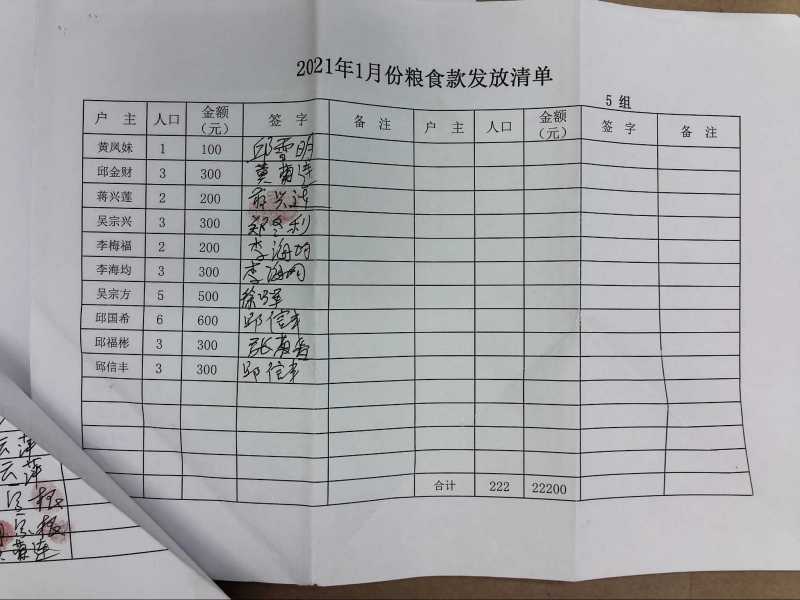 2021年1月份粮食款发放清单
5 组
户 主 人口 金额（元） 签 字 备 注 户 主 人口 金额（元） 签 字 备 注
黄凤妹 1 100 邱雪明
邱金财 3 300 黄菊莲
蒋兴莲 2 200 蒋兴莲
吴宗兴 3 300 郑冬利
李梅福 2 200 李海均
李海均 3 300 李海均
吴宗方 5 500
邱国希 6 600 邱信丰
邱福彬 3 300
邱信丰 3 300 邱信丰
合计 222 22200
云萍
云萍